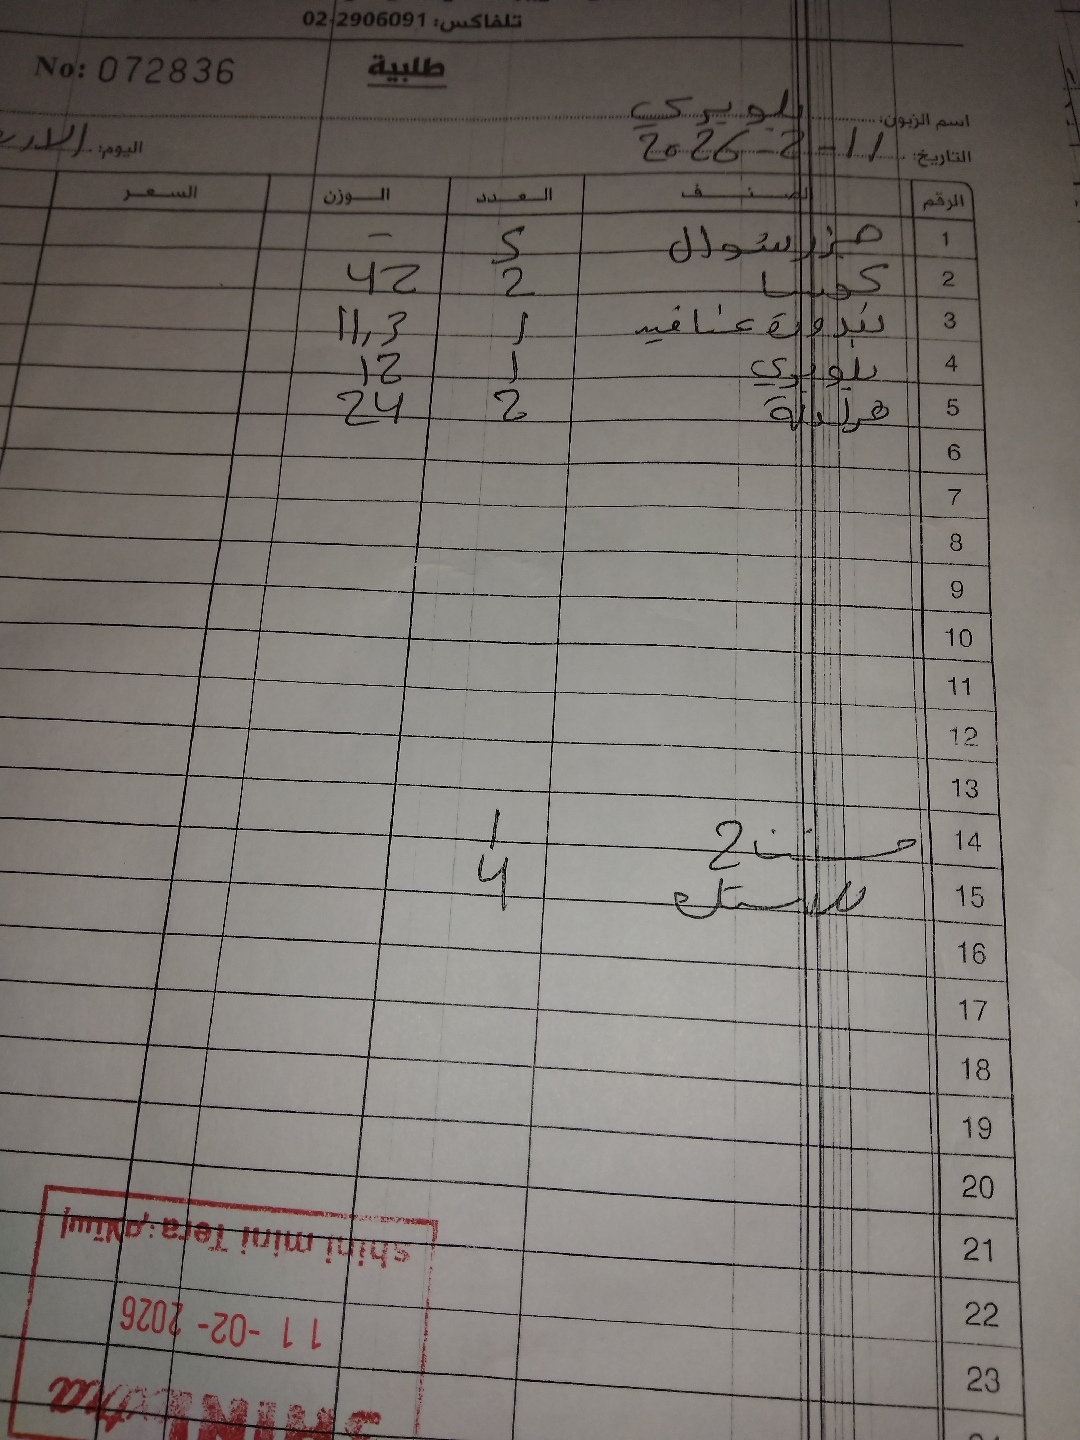 تلفاكس: 02-2906091
No: 072836
طلبية
اسم الزبون: بلوبيري
التاريخ: 11-2-2026
اليوم: الار
الرقم الصنف العدد الوزن السعر
1 5 -
2 2 42
3 بندورة عناقيد 1 11,3
4 بلوبري 1 12
5 2 24
6
7
8
9
10
11
12
13
14 2 1
15 بلاستك 4
16
17
18
19
20
21
22
23
إستلام: shini mini Tera
11-02-2026
SHINI extra